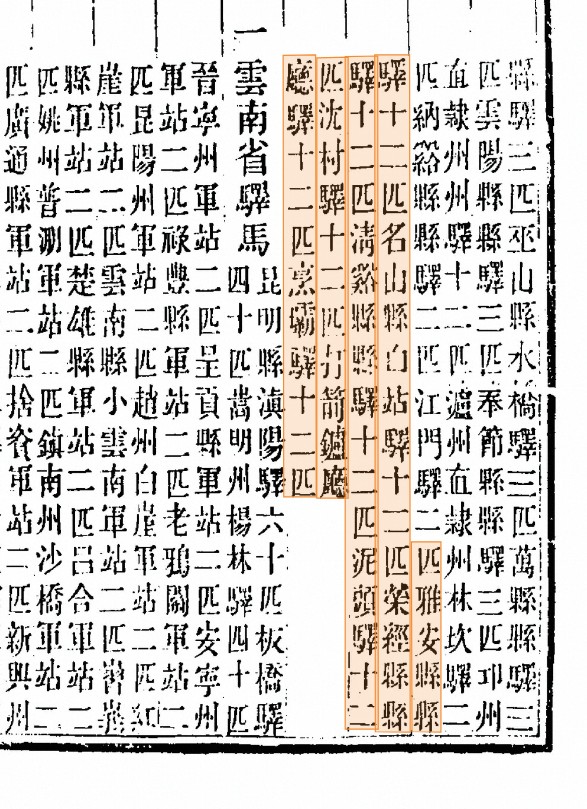 縣驛三匹巫山縣水橋驛三匹萬縣縣驛三
匹雲陽縣縣驛三匹奉節縣縣驛三匹邛州
直隸州州驛十二匹瀘州直隸州林坎驛二
匹納谿縣縣驛二匹江門驛二匹雅安縣縣
驛十二匹名山縣白站驛十二匹榮經縣縣
驛十二匹清谿縣縣驛十二匹泥頭驛十二
匹沈村驛十二匹打箭鑪廳
廳驛十二匹烹壩驛十二匹
一雲南省驛馬昆明縣滇陽驛六十匹板橋驛
四十匹嵩明州楊林驛四十匹
晉寧州軍站二匹呈貢縣軍站二匹安寧州
軍站二匹祿豐縣軍站二匹老鴉關軍站二
匹昆陽州軍站二匹趙州白崖軍站二匹紅
崖軍站二匹雲南縣小雲南軍站二匹
縣軍站二匹楚雄縣軍站二匹呂合軍站二
匹姚州普淜軍站二匹鎮南州沙橋軍站二
匹廣通縣軍站二匹捨資軍站二匹新興州